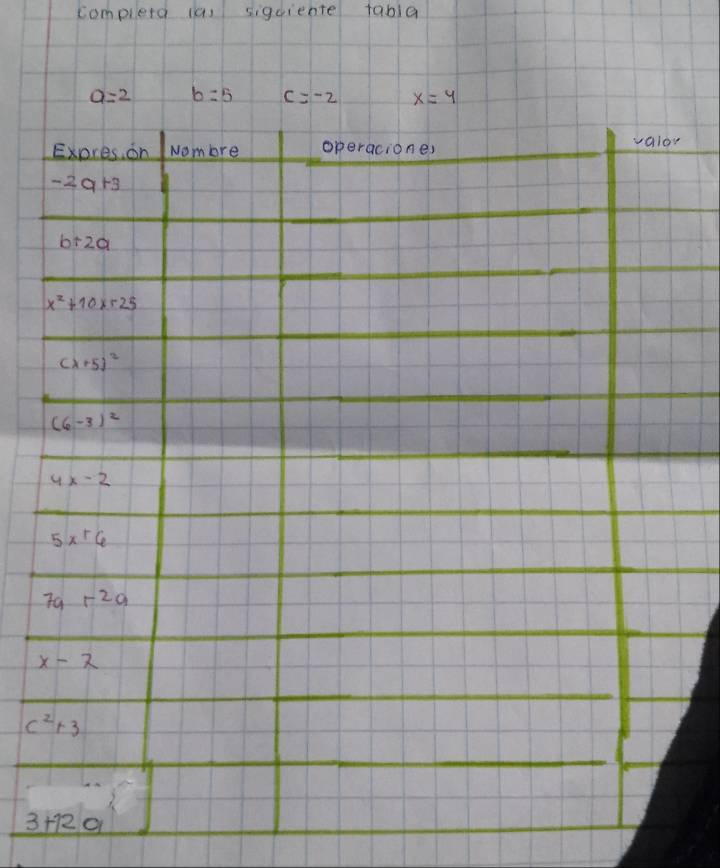 completa las siguiente tabla
a=2 b=5 c=-2 x=4
Expresión Nombre operaciones valor
-2a+3
b+2a
x²+10x+25
(x+5)²
(6-3)²
4x-2
5x+6
7a+2a
x-7
c²+3
3+12a